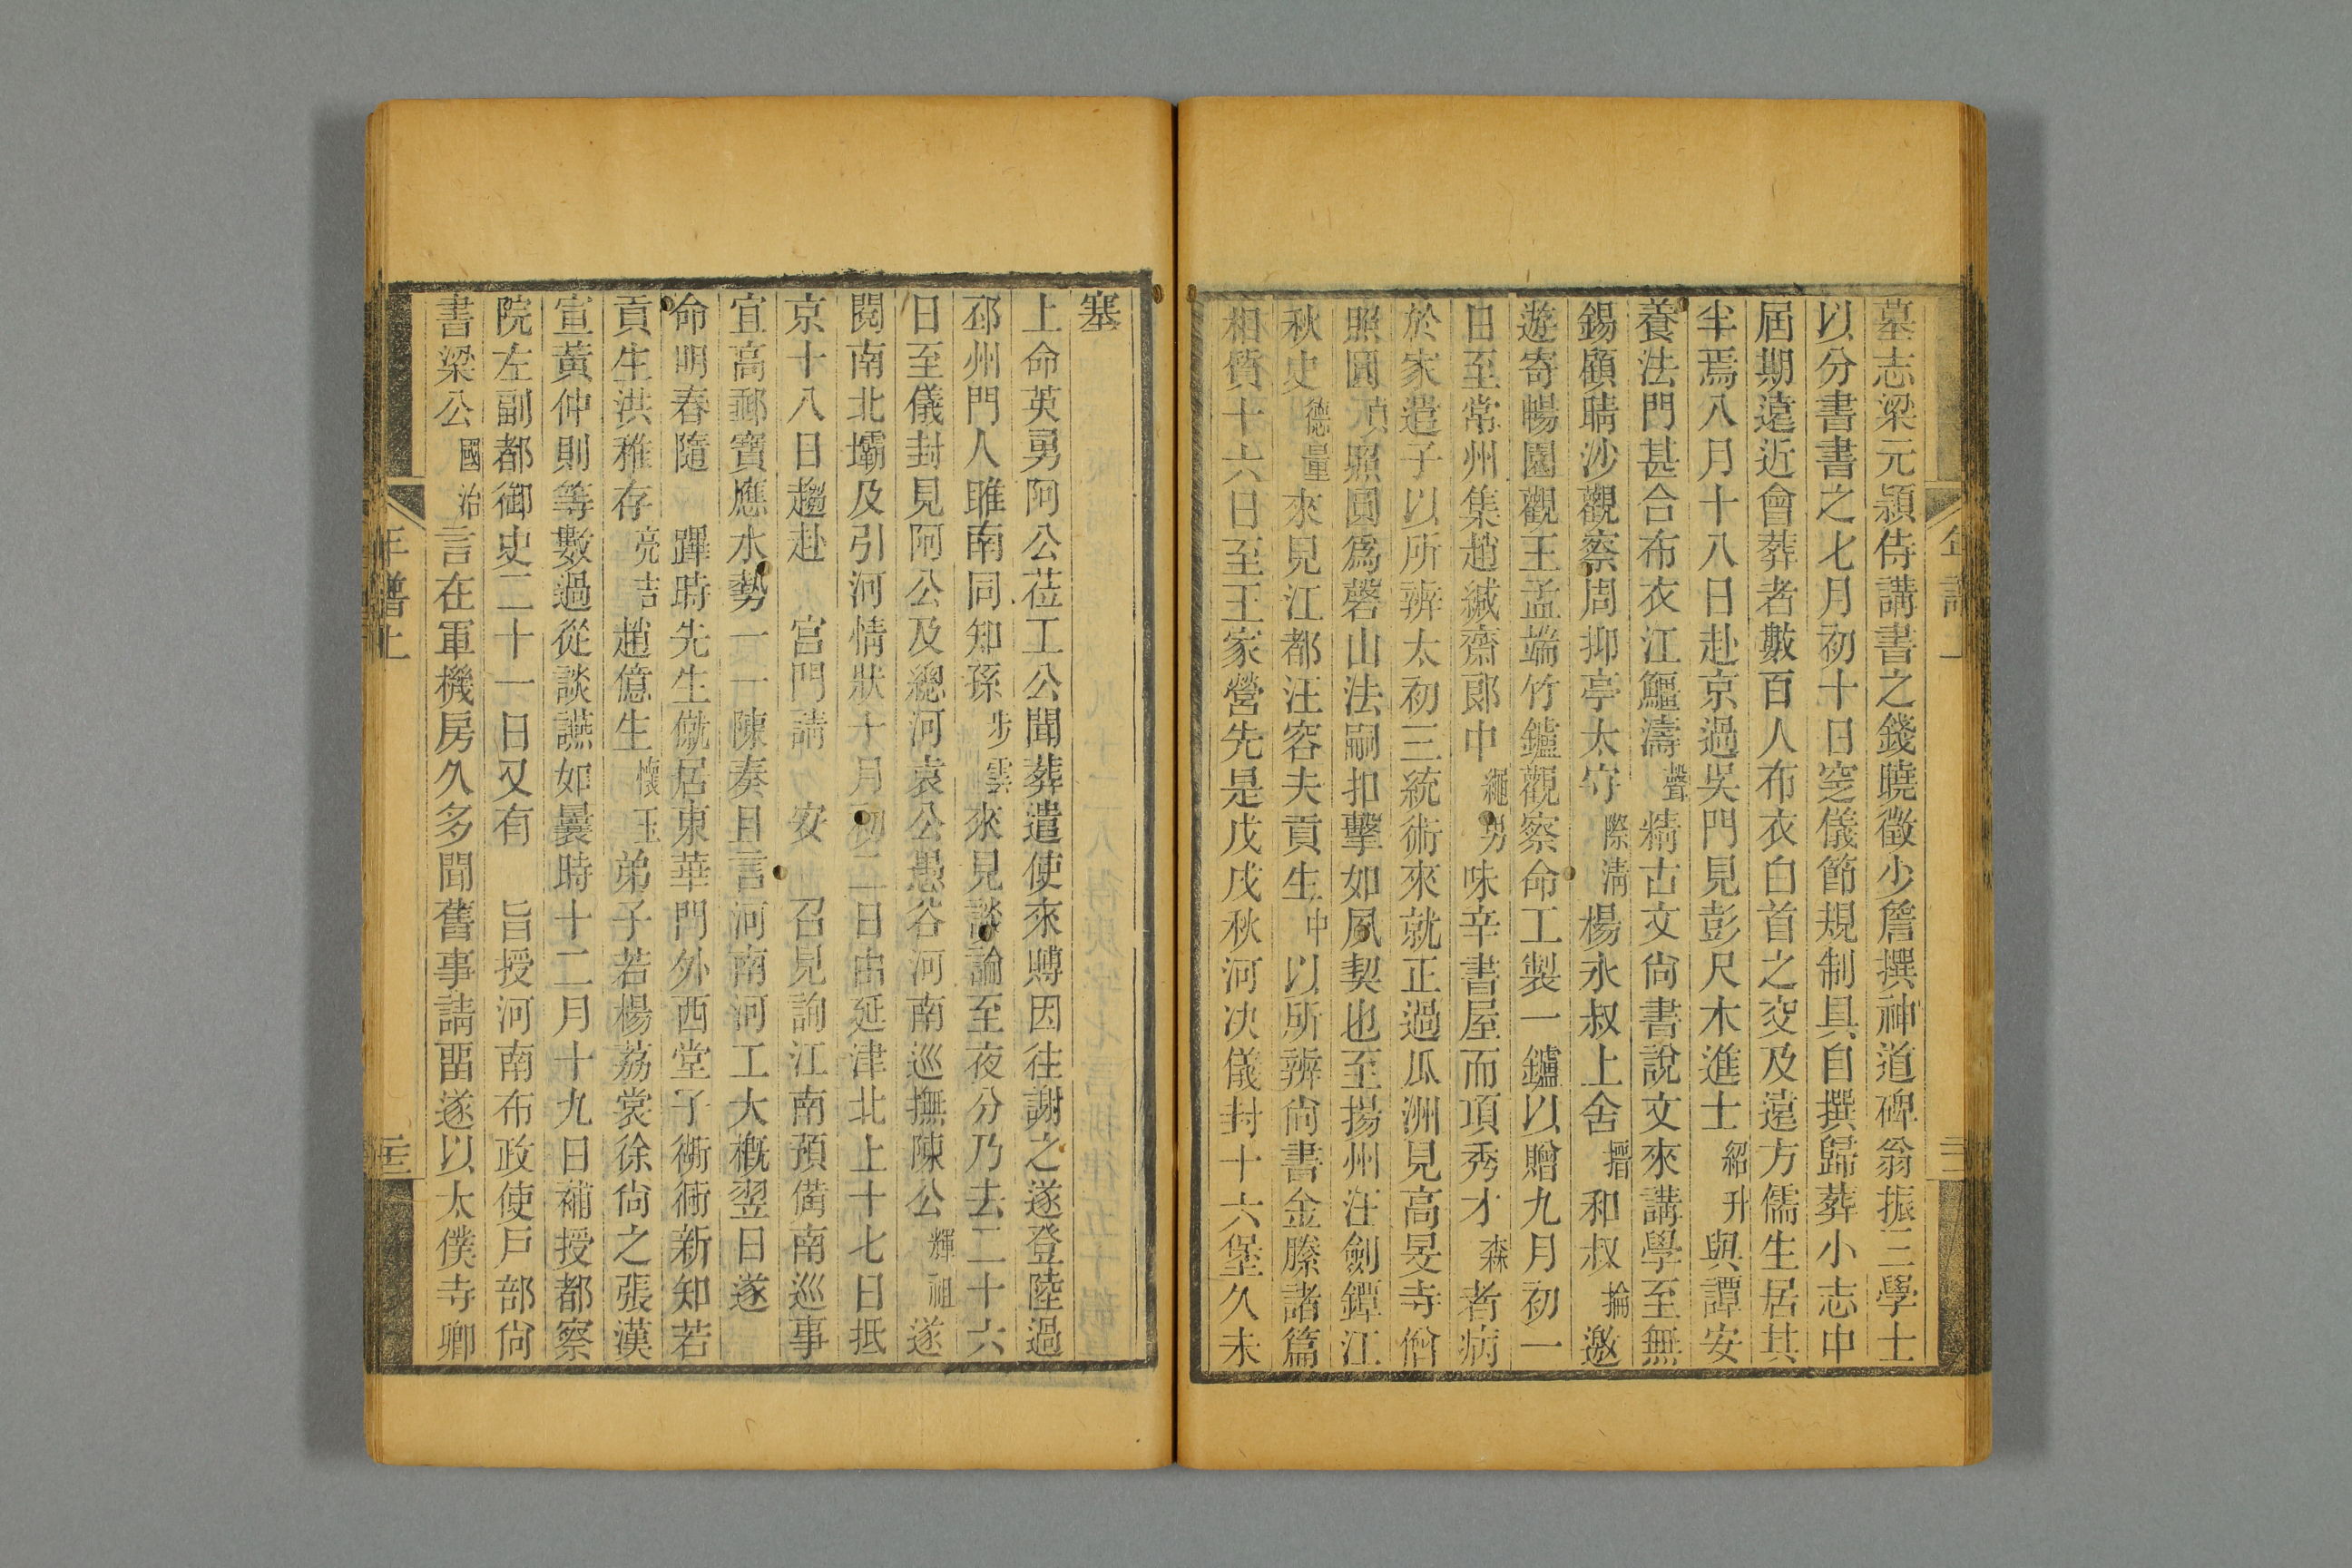 墓志梁元穎侍講書之錢曉徵少詹撰神道碑翁振三學士
以分書書之七月初十日窆儀節規制具自撰歸葬小志中
屆期遠近會葬者數百人布衣白首之交及遠方儒生居其
半焉八月十八日赴京過吳門見彭尺木進士紹升與譚安
養法門甚合布衣江鱷濤聲精古文尙書說文來講學至無
錫顧晴沙觀察周抑亭太守際淸楊永叔上舍搢和叔掄邀
遊寄暢園觀王孟端竹鑪觀察命工製一鑪以贈九月初一
日至常州集趙緘齋郞中繩男味辛書屋而項秀才森者病
於家遣子以所辨太初三統術來就正過瓜洲見高旻寺僧
照圓貞照圓爲磬山法嗣扣擊如夙契也至揚州汪劍鐔江
秋史德量來見江都汪容夫貢生中以所辨尙書金縢諸篇
相質十六日至王家營先是戊戌秋河决儀封十六堡久未
塞
上命英勇阿公莅工公聞葬遣使來賻因往謝之遂登陸過
邳州門人雎南同知孫步雲來見談論至夜分乃去二十六
日至儀封見阿公及總河袁公愚谷河南巡撫陳公輝祖遂
閱南北壩及引河情狀十月初二日由延津北上十七日抵
京十八日趨赴 宮門請 安 召見詢江南預備南巡事
宜高郵寶應水勢一一陳奏且言河南河工大槪翌日遂
命明春隨 蹕時先生僦居東華門外西堂子衚衕新知若
貢生洪稚存亮吉趙億生懷玉弟子若楊荔裳徐尙之張漢
宣黃仲則等數過從談讌如曩時十二月十九日補授都察
院左副都御史二十一日又有 旨授河南布政使戶部尙
書梁公國治言在軍機房久多聞舊事請畱遂以太僕寺卿
年譜上